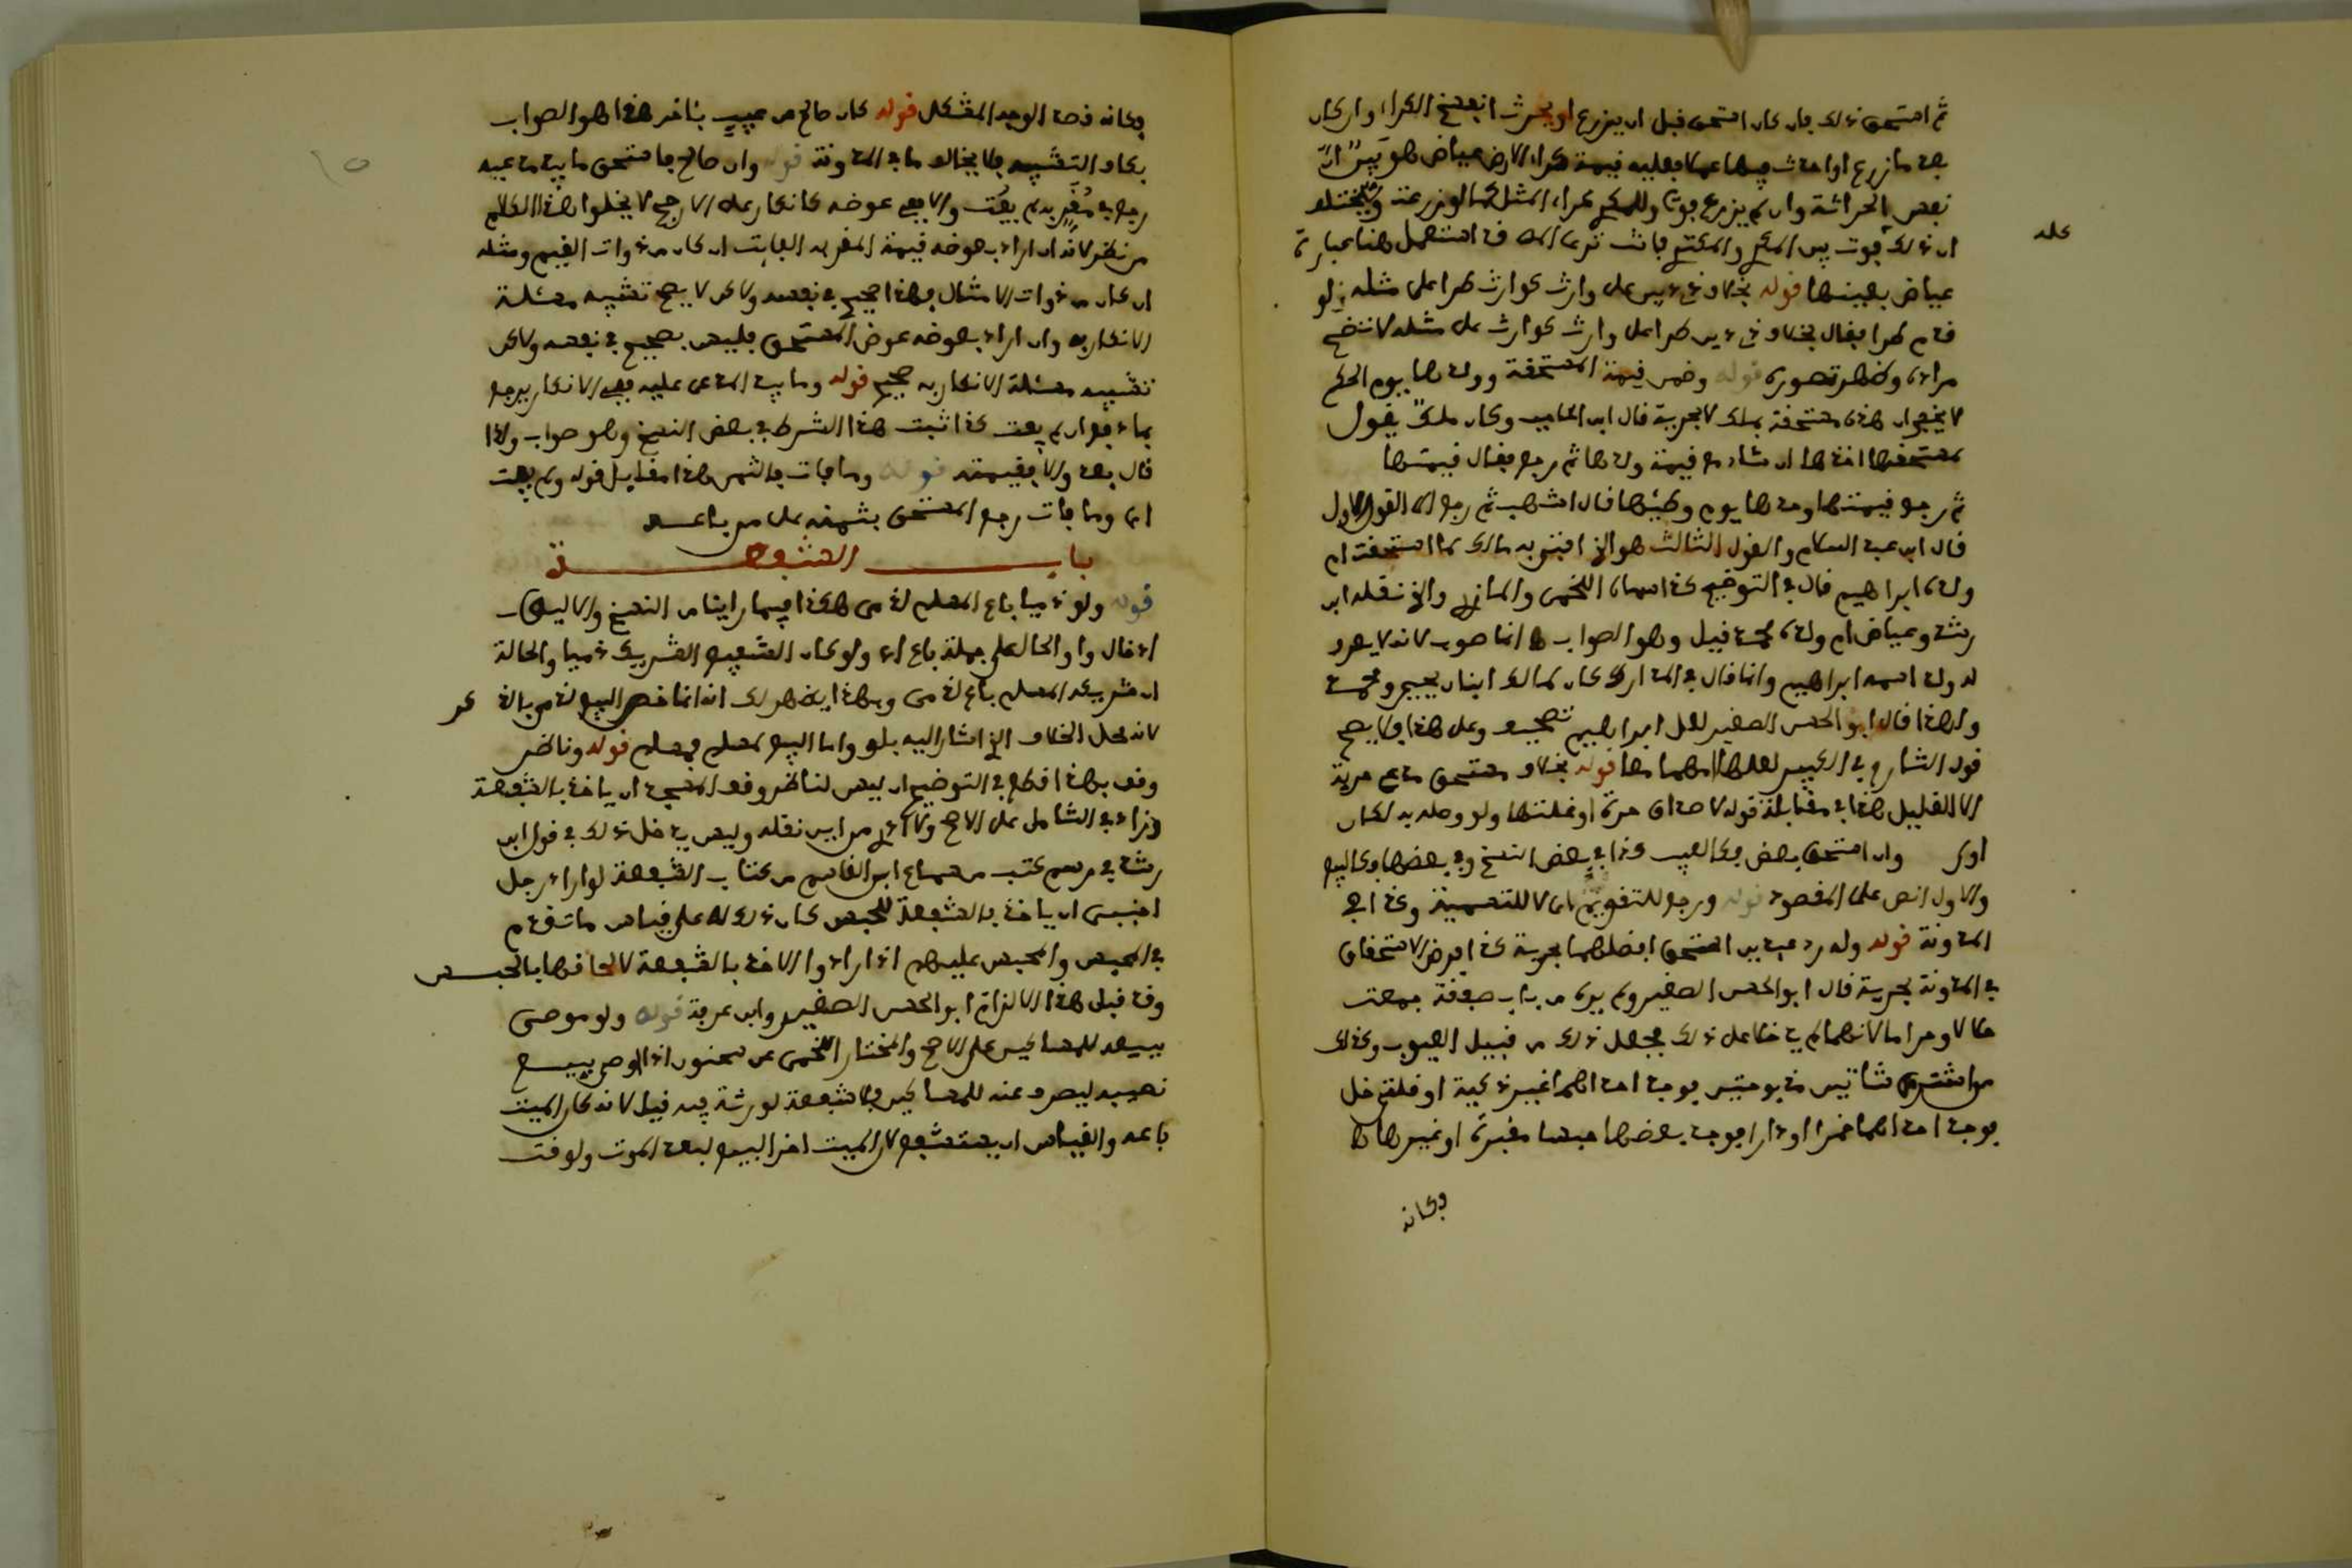 ثم استحق ذلك فإن كان استحق قبل أن يزرع أو يحرث انفسخ الكراء وإن كان
بعد ما زرع أو أحدث فيها عملا فعليه قيمة كراء الأرض عياض هو بين أن
نفس الحراثة وإن لم يزرع فوتا وللمكري كراء المثل كما لو زرعت
أن ذلك فوت بين المكري والمكتري فأنت ترى المؤلف قد استعمل هنا عبارة
عله
عياض بعينها قوله بخلاف ذي دين على وارث كوارث طرأ على مثله لو
قدم طرأ فقال بخلاف ذي دين طرأ على وارث كوارث على مثله لاتضح
مراده وظهر تصوره قوله وضمن قيمة المستحقة وولدها يوم الحكم
لا يخفى أن هذه مستحقة بملك لا بحرية قال ابن الحاجب وكان ملك يقول
لمستحقها أخذها إن شاء مع قيمة ولدها ثم رجع فقال قيمتها
ثم رجع قيمتها وحدها يوم وطئها قال أشهب ثم رجع إلى القول الأول
قال ابن عبد السلام والقول الثالث هو الذي أفتى به مالك لما استحقت أم
ولده إبراهيم قال في التوضيح كذا سماه اللخمي والمازري والذي نقله ابن
رشد وعياض أم ولده محمد قيل وهو الصواب إنما صوب لأنه لا يعرف
له ولد اسمه إبراهيم وإنما قال في المدارك كان لمالك ابنان يحيى ومحمد
ولهذا قال أبو الحسن الصغير لعل إبراهيم تصحيف وعلى هذا فلا يصح
قول الشارح في الكبير لعلها أمهما معا قوله بخلاف مستحق مدعي حرية
إلا القليل هذا في مقابلة قوله لا صداق حرة أو غلتها ولو وصله به لكان
أولى وإن استحق بعض فكالعيب كذا في بعض النسخ وفي بعضها فكالبيع
والأول أنص على المقصود قوله ورجع للتقويم أي لا للتسمية وكذا في
المدونة قوله وله رد عبدين استحق أفضلهما بحرية كذا فرض الاستحقاق
في المدونة بحرية قال أبو الحسن الصغير ولم يره من باب صفقة جمعت
حلالا وحراما لأنهما لم يدخلا على ذلك فجعل ذلك من قبيل العيوب وكذلك
من اشترى شاتين مذبوحتين فوجد إحداهما غير ذكية أو قلتي خل
فوجد إحداهما خمرا أو دارا فوجد بعضها حبسا مقبرة أو غيرها
فكأنه
فكأنه قصد الوجه المشكل قوله كأن صالح عن عيب بآخر هذا هو الصواب
بكاف التشبيه فلا يخالف ما في المدونة قوله وإن صالح فاستحق ما بيد مدعيه
رجع في مقر به لم يفت وإلا ففي عوضه كإنكار على الأرجح لا يخلو هذا الكلام
من نظر لأنه إن أراد بعوضه قيمة المقر به الفايت إن كان من ذوات القيم ومثله
إن كان من ذوات الأمثال فهذا صحيح في نفسه ولاكن لا يصح تشبيه مسئلة
الإنكار به وإن أراد بعوضه عوض المستحق فليس بصحيح في نفسه ولاكن
تشبيه مسئلة الإنكار به صحيح قوله وما بيد المدعى عليه ففي الإنكار يرجع
بما دفع إن لم يفت كذا ثبت هذا الشرط في بعض النسخ وهو صواب ولذا
قال بعد وإلا فبقيمته قوله وما فات فالثمن هذا مقابل قوله ولم يفت
أي وما فات رجع المستحق بثمنه على من باعه
باب الشفعة
قوله ولو ذميا باع المسلم لذمي هكذا فيما رأينا من النسخ
إدخال واو الحال على جملة باع أي ولو كان الشفيع الشريك ذميا والحالة
أن شريكه المسلم باع لذمي وبهذا يظهر لك أنه إنما خص البيع لذمي بالذكر
لأنه محل الخلاف الذي أشار إليه بلو وأما البيع لمسلم فمسلم قوله وناظر
وقف بهذا قطع في التوضيح أن ليس لناظر وقف المسجد أن ياخذ بالشفعة
وزاد في الشامل على الأصح ولا أدري من أين نقله وليس يدخل ذلك في قول ابن
رشد في رسم كتب من سماع ابن القاسم من كتاب الشفعة لو أراد رجل
أجنبي أن ياخذ بالشفعة للحبس كان ذلك له على قياس ما تقدم
في المحبس والمحبس عليهم إذا أرادوا الأخذ بالشفعة لإلحاقها بالحبس
وقد قبل هذا الإلزام أبو الحسن الصغير وابن عرفة قوله ولو موصى
ببيعه للمساكين على الأصح والمختار اللخمي عن سحنون إذا أوصى ببيع
نصيبه ليصرف عنه للمساكين فلا شفعة لورثته فيه قيل لأنه كأن الميت
باعه والقياس أن يستشفع لأن الميت أخر البيع لبعد الموت ولوقت